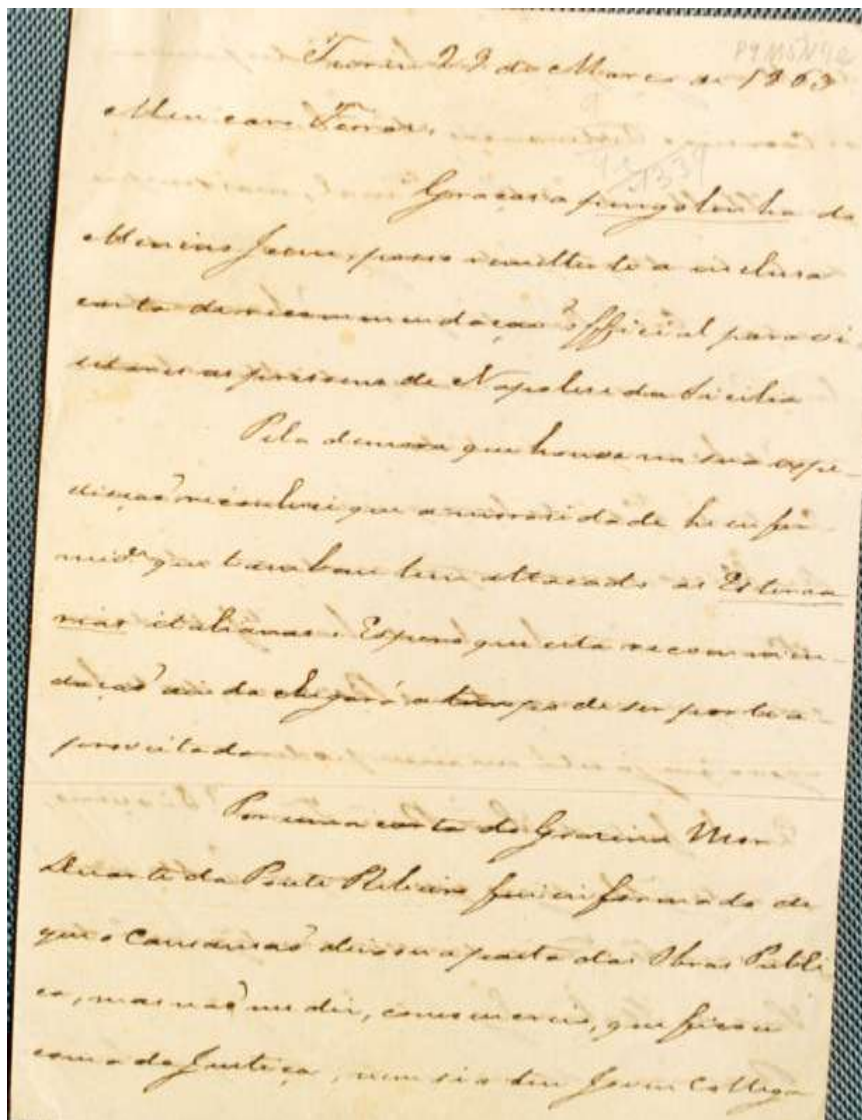 Turin 22 de Março de 1863
Meu caro Ferraz,
Graças a pingolinha do
Menino Jesus, posso remetter te a inclusa
carta de recommendaçaõ official para vi-
sitares as prisoens de Napoles e da Sicilia
Pela demora que houve na sua expe-
diçaõ reconheci que a morosidade he enfer-
mide que tambem tem attacado as
italianas. Espero que esta recommen-
daçaõ ainda chegará a tempo de ser por ti a-
proveitada
Por uma carta do
Duarte da Ponte Ribeiro fui informado de
que o Cansansaõ deixou a pasta das Obras Publi
cas, mas naõ me diz, como
com a da Justiça, nem si o teu Joven Collega